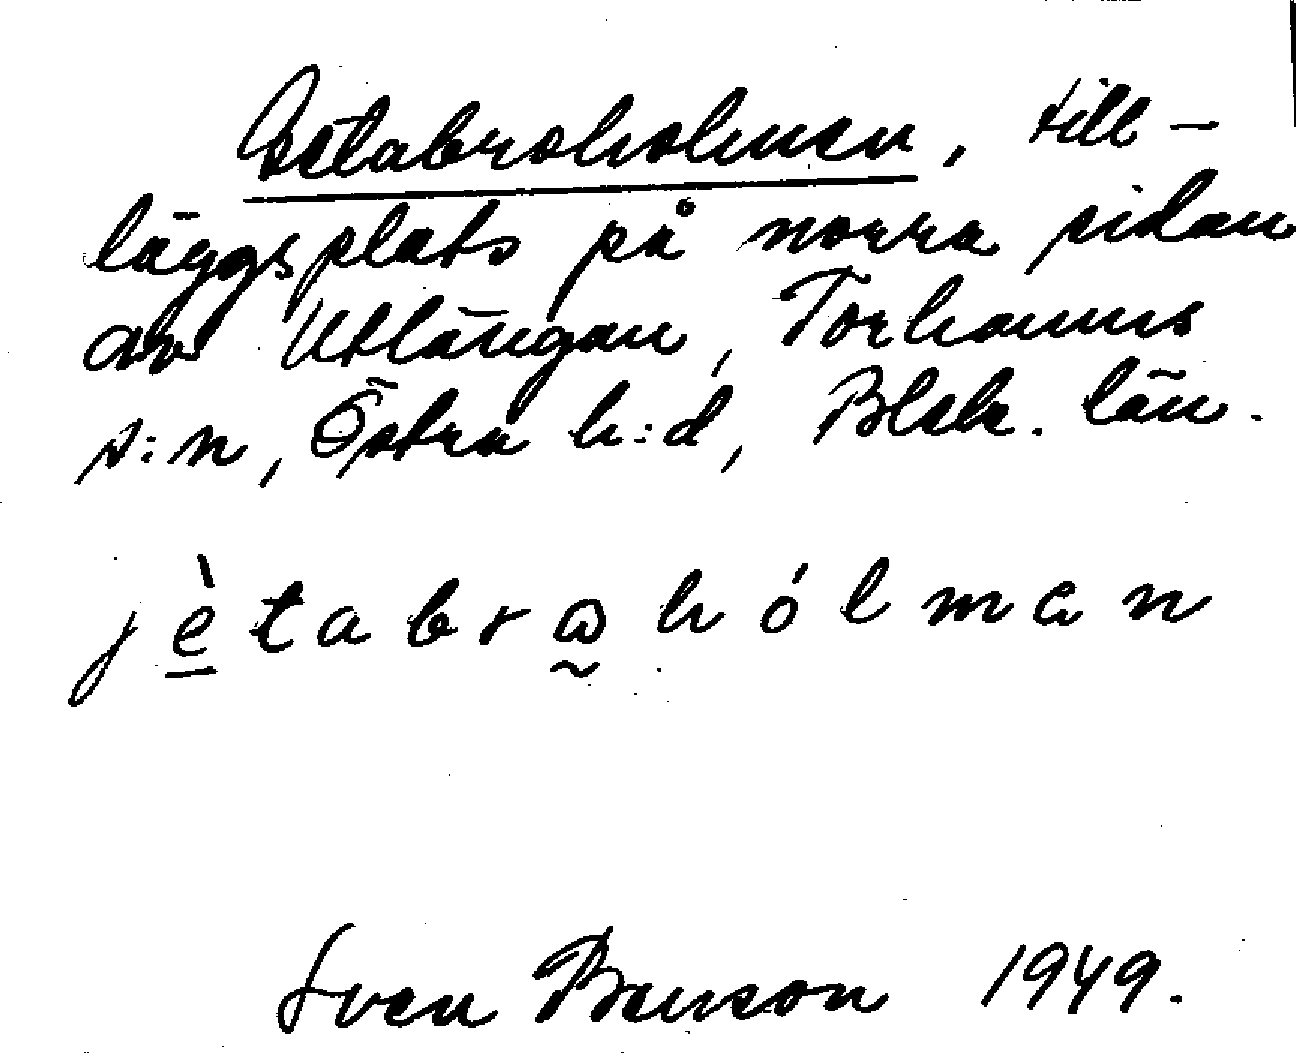 Getabroholmen, till-
läggsplats på norra sidan
av Utlängan, Torhamns
s:n, Östra h:d, Blek. län.
jètabrωhólman
Sven Benson 1949.